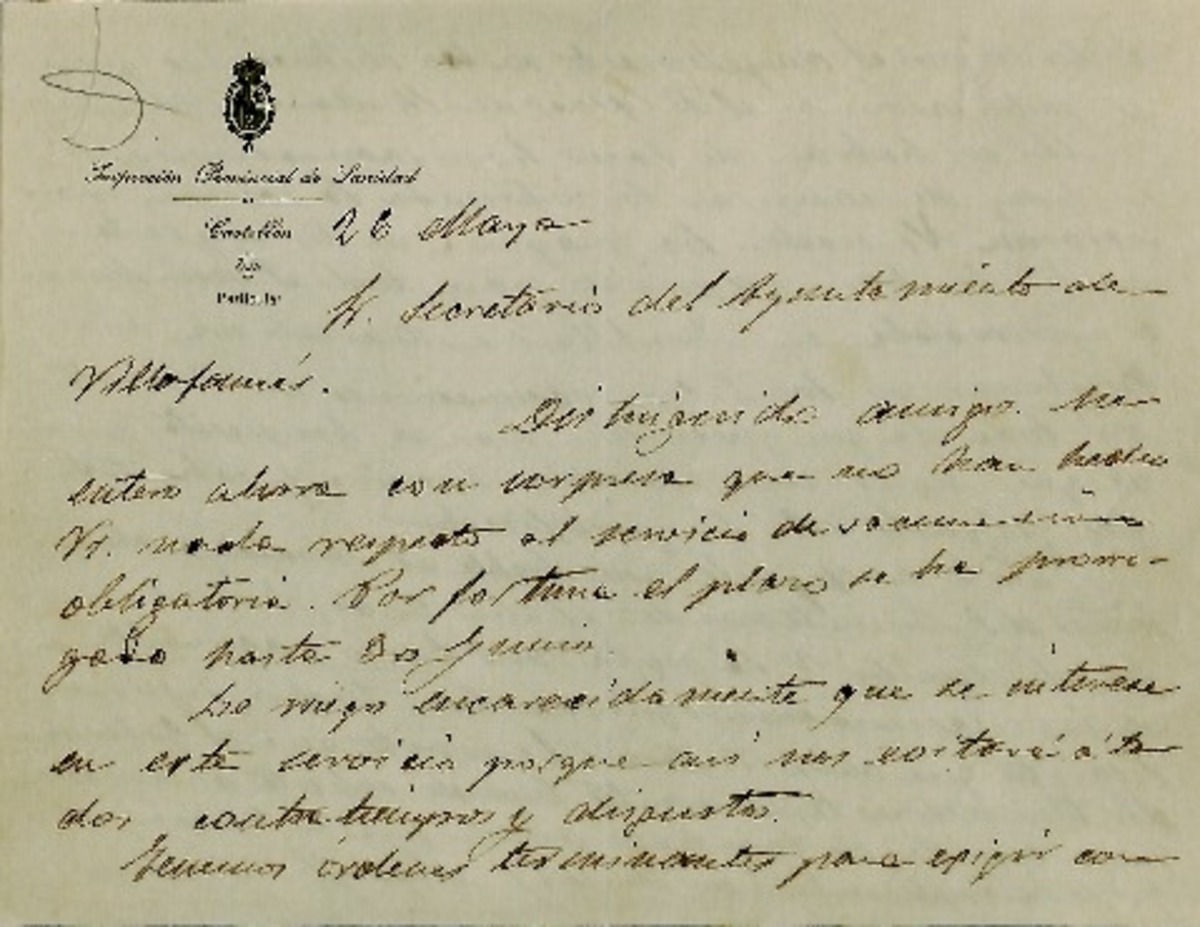 Inspección Provincial de Sanidad
de
Castellón
Particular
26 Mayo
Sr. Secretario del Ayuntamiento de
Villafamés.
Distinguido amigo: Me
entero ahora con sorpresa que no han hecho
Vs. nada respecto al servicio de vacunación
obligatoria. Por fortuna el plazo se ha prorro-
gado hasta 30 Junio.
Le ruego encarecidamente que se interese
en este servicio porque así nos evitará á to
dos contratiempos y disgustos.
Tenemos órdenes terminantes para exigir con